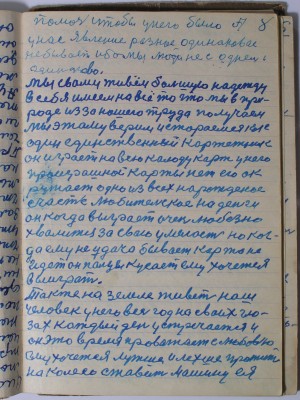 помог чтобы у него было А 8
у нас явление разное одинаково
небывает ибо мы люди не с одень
одинаково.
Мы свами живём большую надежду
в себя имеем на всё то что мы в при-
роде из за нашего труда получаем
мы этому верим и стараемся как
один единственный картежник
он играет на всю колоду карт у него
проиграшной карты нет его ок
ружает одно из всех нарожденое
счастье любительское на деньги
он когда выиграет очен любезно
хвалится за свою умелость но ког-
да ему не удача бывает карта не
идет он пальцы кусает ему хочется
выиграт.
Так те на земле живет наш
человек у него всех год на своих гла-
зах каждый ден и встречается и
он это время проважает с любовю
ему хочется лутше и лехше прожить
на колесо ставит машину ея